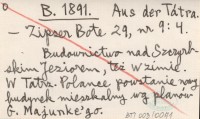 B. 1891. Aus der Tátra.
– Zipser Bote 29, nr 9: 4.
Budownictwo nad Szczyrb-
skim jeziorem, też w zimie.
W Tatrz. Polance powstanie nowy
budynek mieszkalny wg planów
G. Majunke'go.